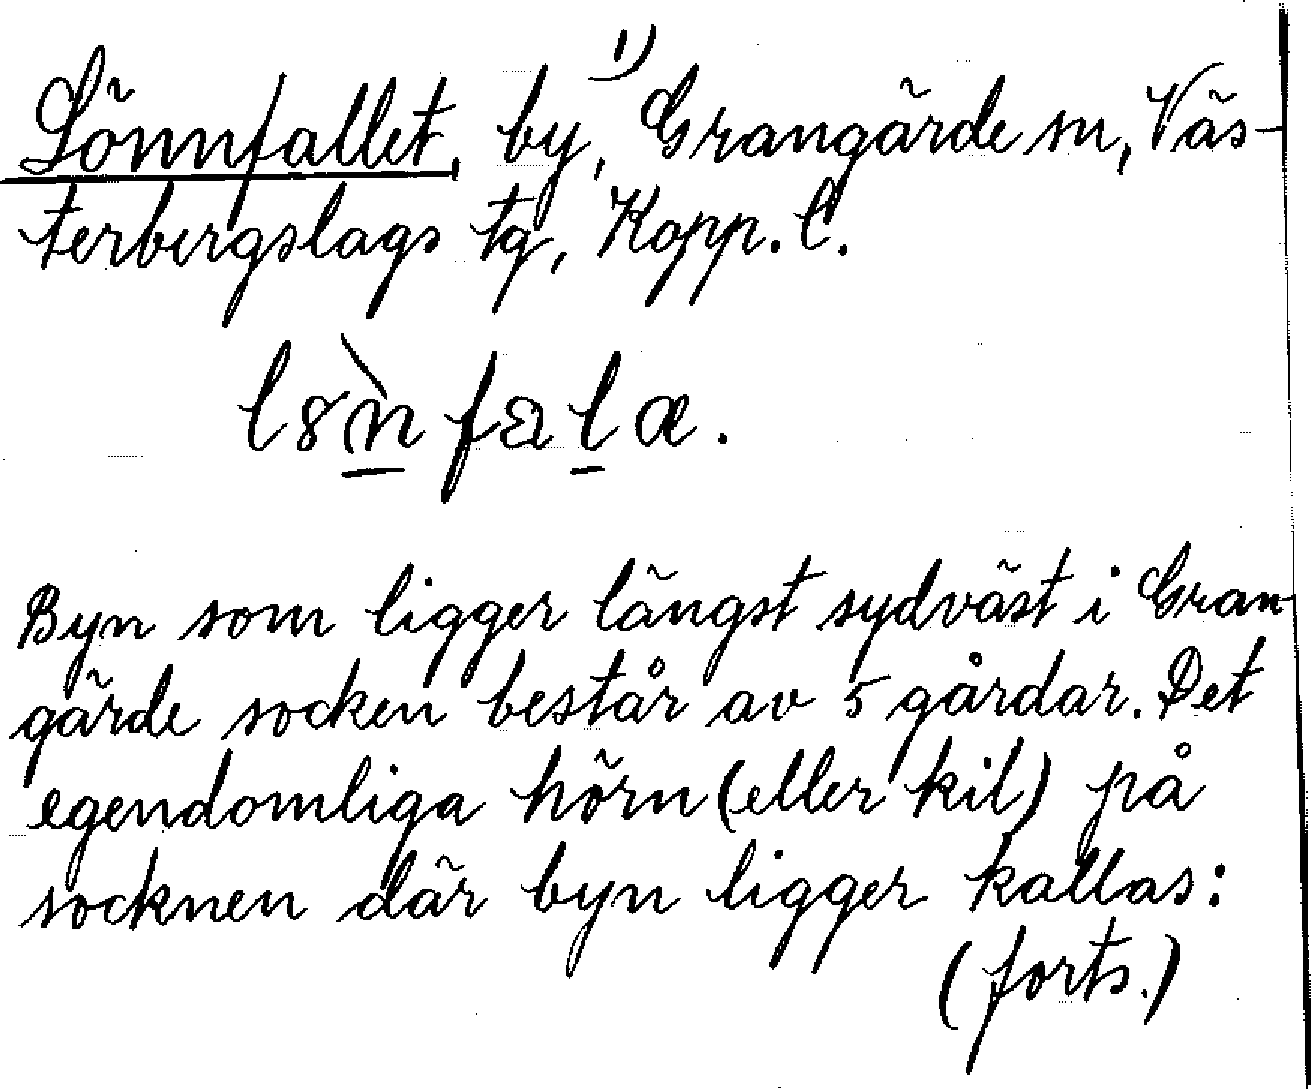 1)
Lönnfallet, by, Grangärde sn, Väs-
terbergslags tg, Kopp. l.
löǹ̲fal̲a.
Byn som ligger längst sydväst i Gran-
gärde socken består av 5 gårdar. Det
egendomliga hörn (eller kil) på
socknen där byn ligger kallas:
(forts.)